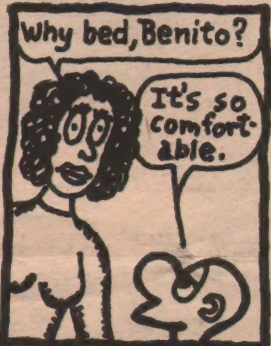 Why bed, Benito?
It's so
comfort-
able.